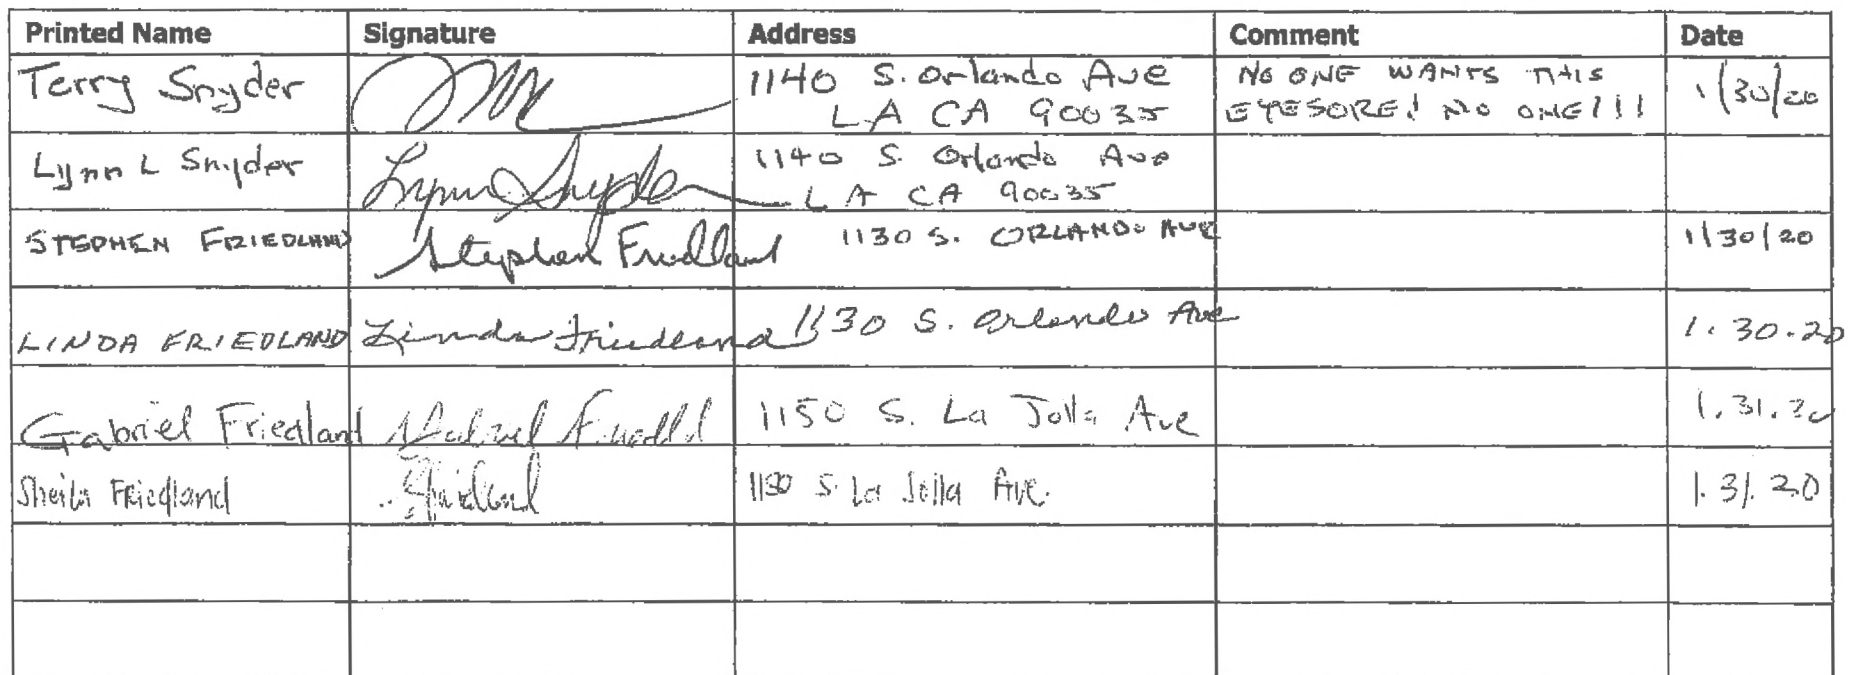 Printed Name Signature Address Comment Date
Terry Snyder 1140 S. Orlando Ave NO ONE WANTS THIS 1/30/20
LA CA 90035 EYESORE! NO ONE!!!
Lynn L Snyder Lynn Snyder 1140 S. Orlando Ave
LA CA 90035
STEPHEN FRIEDLAND Stephen Friedland 1130 S. ORLANDO AVE 1/30/20
LINDA FRIEDLAND Linda Friedland 1130 S. Orlando Ave 1.30.20
Gabriel Friedland Gabriel Friedld 1150 S. La Jolla Ave 1.31.20
Sheila Friedland SFriedland S. La Jolla Ave. 1.31.20